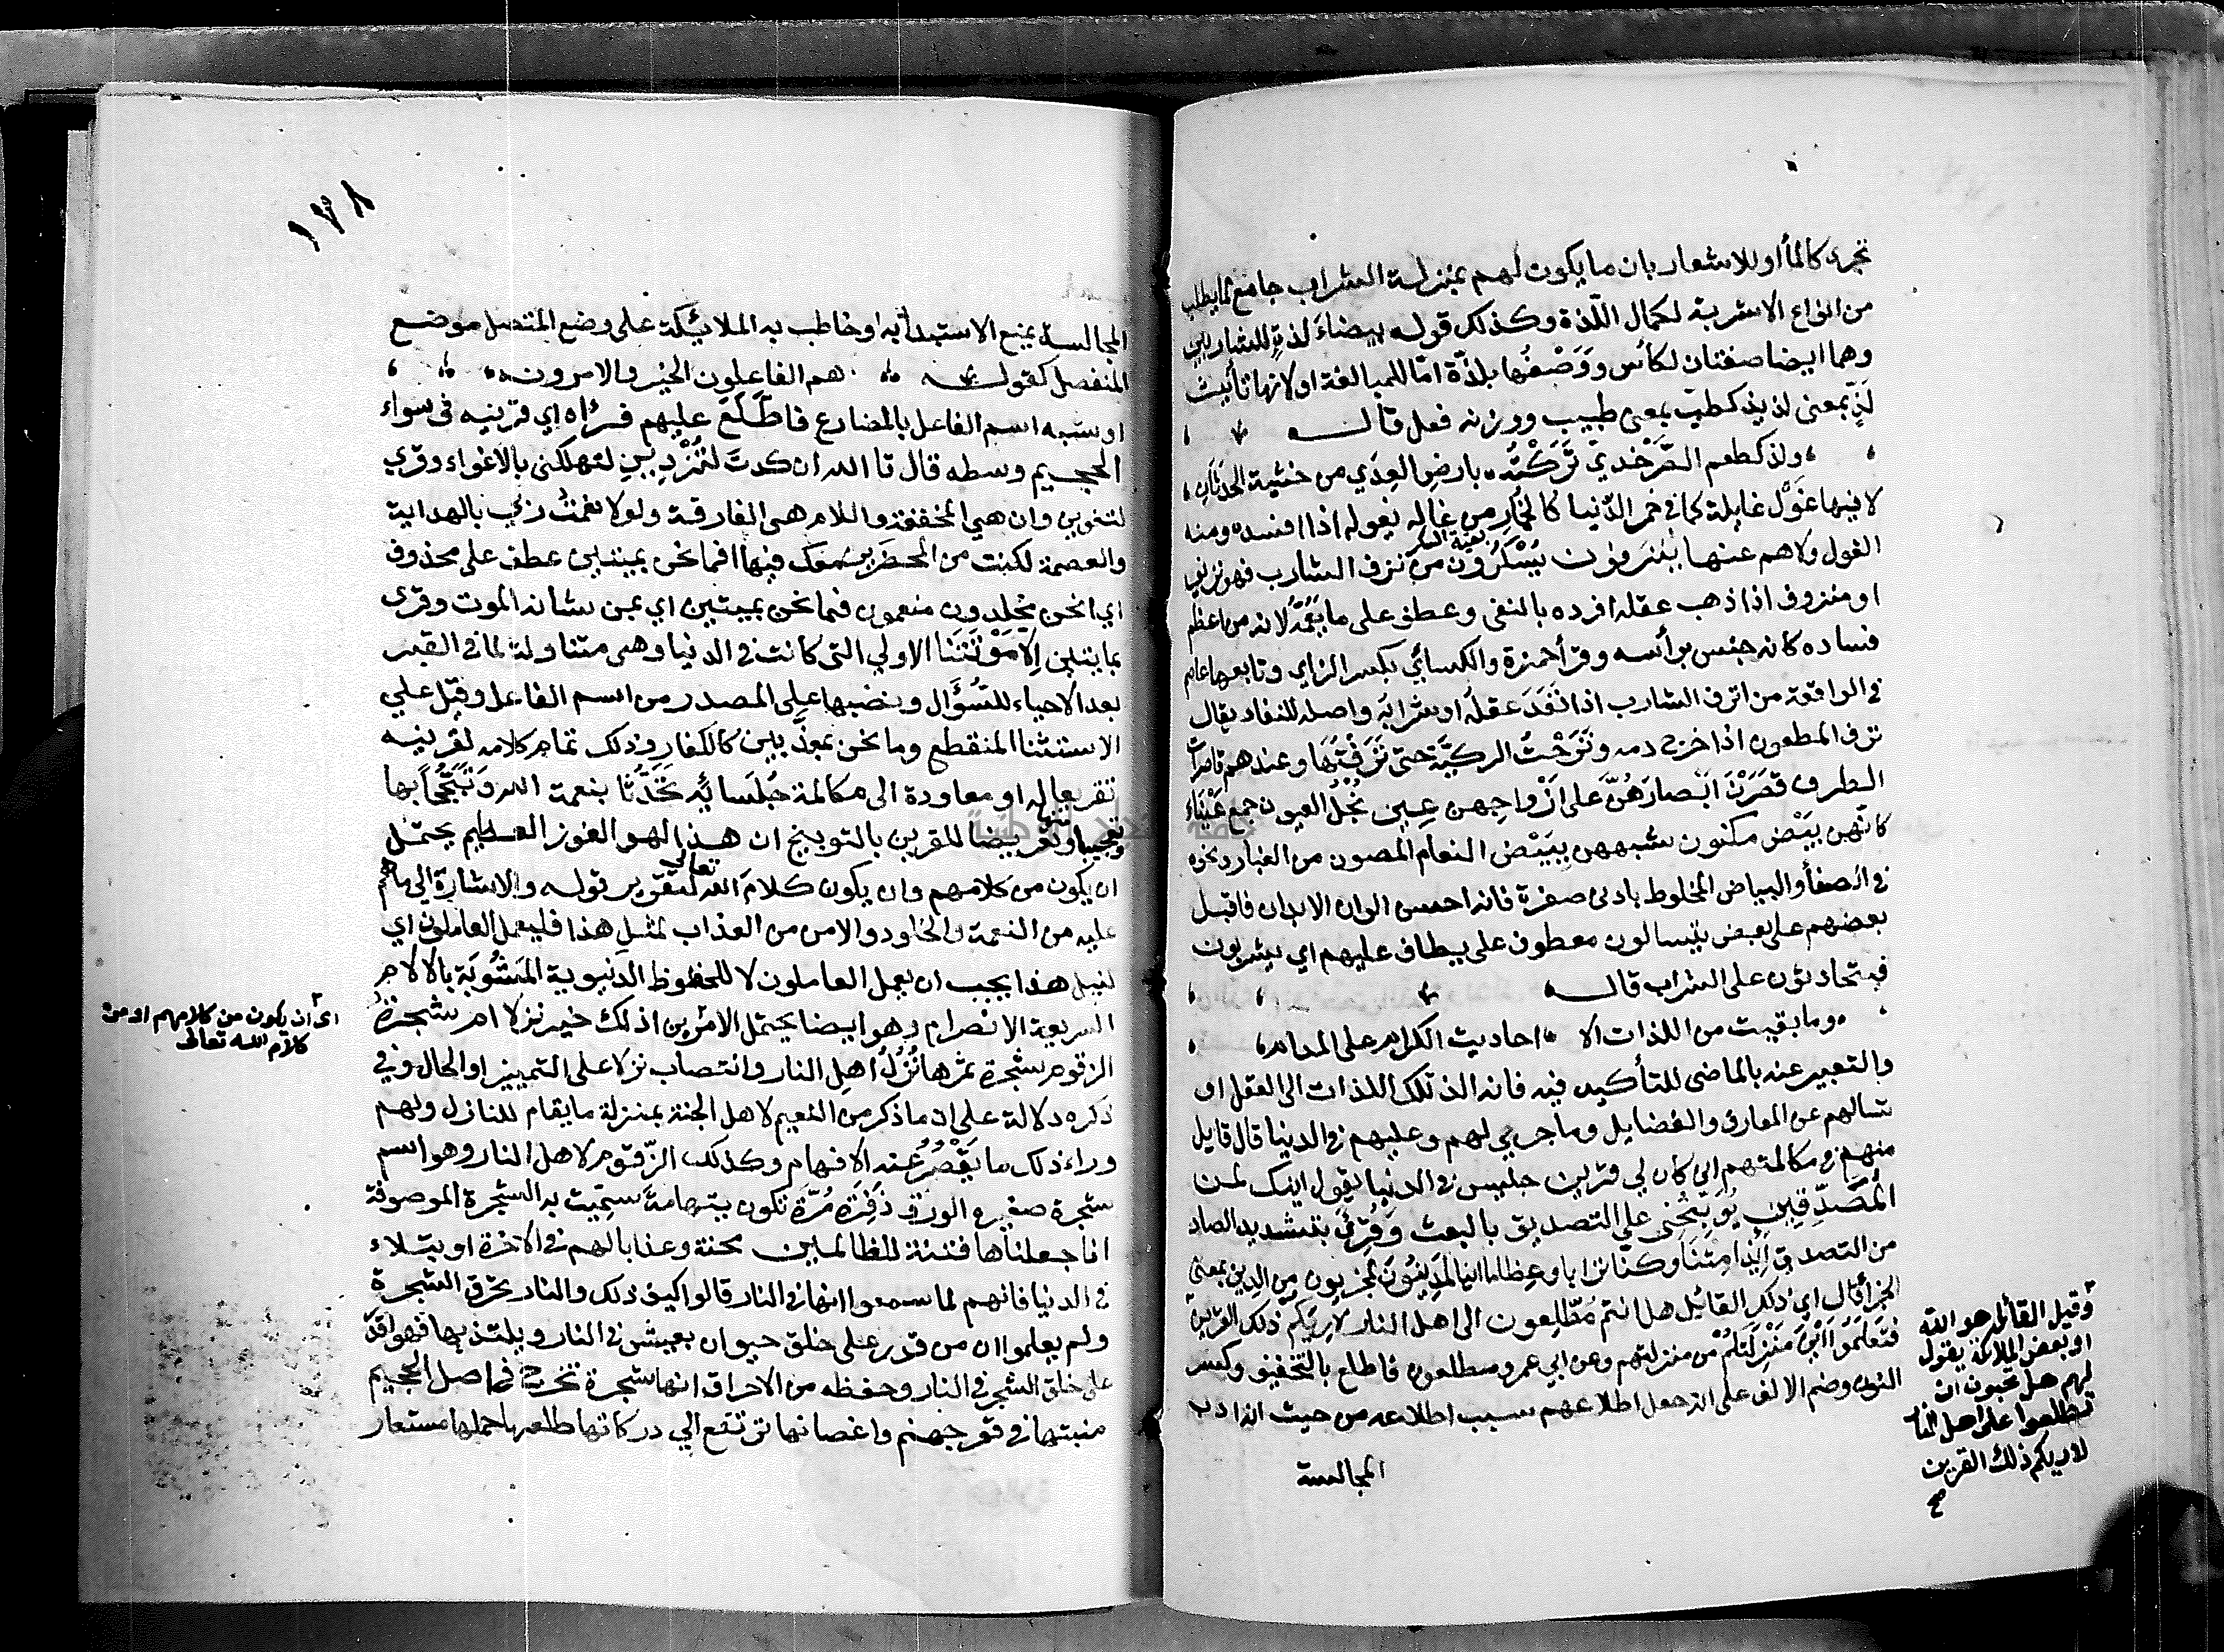 تجرى كالمأ او للاشعار بان ما يكون لهم بمنزلة الشراب جامع لما يطلب
من انواع الاشربة لكمال اللّذة وكذلك قوله بيضاء لذةٍ للشاربين
وهما ايضا صفتان لكاس ووَصْفُها بلذّة امّا للمبالغة او لانها تأنيث
لَذٍّ بمعنى لذيذ كطبّ بمعنى طبيب ووزنه فعل قال
ولذ كطعم الصَّرْخدي تَرَكْتُه بارض العِدَي من خشية الحدثان
لا فيها غَوْل غايلة كما في خمر الدّنيا كالخمار من غاله يغوله اذا افسده ومنه
الغول ولا هم عنها ينزفون يُسْكَرُون من نزف الشارب فهو نزيف
او منزوف اذا ذهب عقله افرده بالنفى وعطف على ما يَعُمّه لانه من اعظم
فساده كانه جنس برأسه وقرأ حمزة والكسائي بكسر الزاي وتابعهما عاصم
في الواقعة من انزف الشارب اذا نَفَدَ عقلُه او شرابُه واصله للنفاد يقال
نزف المطعون اذا خرج دمه ونَزَحْتُ الركيّة حتى نَزَفْتُها وعندهم قاصرات
الطرف قَصَرْنَ اَبْصارَهُنّ على اَزْواجهن عِين نُجْلُ العيون جمع عَيْنَاء
كانهن بَيْض مكنون شبههن بِبَيْض النعام المصون من الغبار ونحوه
في الصفأ والبياض المخلوط بادنى صفرة فانه احسن الوان الابدان فاقبل
بعضهم على بعض يتسالون معطوف على يطاف عليهم اي يشربون
فيتحادثون على الشراب قال
وما بقيت من اللذات الا احاديث الكرام على المدام
والتعبير عنه بالماضى للتأكيد فيه فانه الذ تلك اللذات الى العقل او
تسالهم عن المعارف والفضايل وما جرى لهم وعليهم في الدنيا قال قايل
منهم في مكالمتهم انى كان لي قرين جليس في الدنيا يقول اينك لمن
المُصَدِّقِين يُوَبِّخُنِى على التصديق بالبعث وقُرِئ بتشديد الصاد
من التصدق اَئِذا مِتْنَا وكنّا ترابا وعِظاما اينا لمَدِينُونَ لمجزيون من الدين بمعنى
الجزأ قال اي ذلك القائل هل انتم مُطّلِعون الى اهل النار لاُرِيَكُم ذلك القرين
فتَعْلَمُوا اَيْنَ مَنْزِلتكم من منزلتهم وعن ابي عمرو مطلعون فاطلع بالتخفيف وكسر
النون وضم الالف على انه جعل اطلاعهم سبب اطلاعه من حيث ان ادب
المجالسة
وقيل القائل هو الله
او بعض الملائكة يقول
لهم هل تحبون ان
تطلعوا على اهل النار
لاوريكم ذلك القرين
صح
١٧٨
المجالسة يمنع الاستبدأ به او خاطب به الملائكة على وضع المتصل موضع
المنفصل كقوله هم الفاعلون الخير والامرون
او شبه اسم الفاعل بالمضارع فاطّلَعَ عليهم فرأه اي قرينه فى سواء
الجحيم وسطه قال تا الله ان كدتَ لتُرْدِينِ لتهلكنى بالاغواء وقري
لتغوين وان هي المخففة واللام هى الفارقة ولولا نعمتُ ربي بالهداية
والعصمة لكنت من المحضرين معك فيها افما نحن بميتين عطف على محذوف
اي انحن مخلدون منعمون فما نحن بميتين اي بمن شانه الموت وقرى
بمايتين اِلّا مَوْتَتَنَا الاولي التى كانت في الدنيا وهى متناولة لما في القبر
بعد الاحياء للسُّؤَال ونصبها على المصدر من اسم الفاعل وقيل على
الاستثنا المنقطع وما نحن بمعذّبين كالكفار وذلك تمام كلامه لقرينه
تقريعا له او معاودة الى مكالمة جُلَسائِه تحَدُّثًا بنعمة الله وتَبَجُّحًا بها
وتعجيبا منها وتعريضا للقرين بالتوبيخ ان هذا لهو الفوز العظيم يحتمل
ان يكون من كلامهم وان يكون كلامَ الله تعالى لتقرير قوله والاشارة الى ما هم
عليه من النعمة والخلود والامن من العذاب لمثل هذا فليعمل العاملون اي
لنيل هذا يجب ان يعمل العاملون لا للحظوظ الدنيوية المَشُوبَة بالالام
السريعة الانصرام وهو ايضا يحتمل الامرين اذلك خير نزلا ام شجرةُ
الزقوم شجرة ثمرها نُزُلُ اهل النار وانتصاب نزلا على التمييز او الحال وفي
ذكره دلالة على ان ما ذكر من النعيم لاهل الجنة بمنزلة ما يقام للنازل ولهم
وراء ذلك ما يَقْصُرُ عنه الافهام وكذلك الزّقّوم لاهل النار وهو اسم
شجرة صغيره الورق ذَفِرَة مُرّة تكون بتهامة سمّيت به الشجرة الموصوفة
انا جعلناها فتنة للظالمين محنة وعذابا لهم في الاخرة او ابتلاء
في الدنيا فانهم لما سمعوا انها في النار قالوا كيف ذلك والنار تحرق الشجرة
ولم يعلموا ان من قدر على خلق حيوان يعيش في النار ويلتذ بها فهو اقدر
على خلق الشجر في النار وحفظه من الاحراق انها شجرة تخرج في اصل الجحيم
منبتها في قعر جهنم واغصانها ترتفع الي دركاتها طلعها حملها مستعار
اى ان يكون من كلامهم او من
كلام الله تعالى